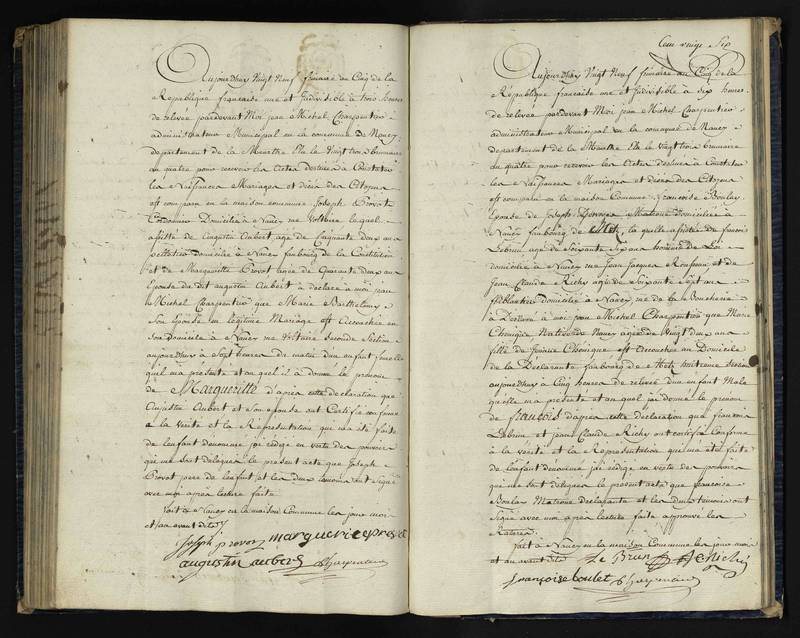 Aujourdhuy Vingt Neuf frimaire an Cinq de la
Republique française une et Indivisible à trois heures
de relevée pardevant Moi jean Michel Charpentier
administrateur Municipal en la commune de Nancy
departement de la Meurthe Elu le Vingt trois brumaire
an quatre pour recevoir les Actes destinés à Constater
les Naissances Mariages et décès des Citoyens
est comparu en la maison commune Joseph Provot
Cordonnier Domicilié à Nancy rue Voltaire lequel
assisté de augustin Aubert, agé de Cinquante deux ans
domicilié à Nancy faubourg de la Constitution
et de Marguerite Provot agée de Quarante deux ans
Epouse du dit augustin Aubert à déclaré à moi jean
Michel Charpentier que Marie Barthelemy
Son Epouse en legitime Mariage est accouchée en
son domicile à Nancy rue Voltaire seconde Section
aujourdhuy à Sept heures du matin d'un enfant femelle
qu'il m'a présenté et au quel il a donné le prenom
de Margueritte d'après cette déclaration que
Augustin Aubert et son epouse ont Certifié conforme
a la verité et la Représentation qui m'a été faite
de l'enfant dénommé j'ai rédigé en vertu des pouvoirs
qui me sont délégués le present acte que Joseph
Provot pere de l'enfant et les deux temoins ont Signé
avec moi après lecture faite
fait à Nancy en la maison Commune les jour mois
et an avant dits
Joseph provot marguerite provot
augustin aubert JCharpentier
Cent vingt Six
Aujourdhuy Vingt Neuf frimaire an Cinq de la
République française une et Indivisible à six heures
de relevée pardevant Moi jean Michel Charpentier
administrateur Municipal en la commune de Nancy
departement de la Meurthe Elu le Vingt trois brumaire
an quatre pour recevoir les Actes destinés à Constater
les Naissances Mariages et décès des Citoyens
est comparu en la maison Commune françoise Boulay
Epouse de Joseph Matrone Domiciliée à
Nancy faubourg de Metz, la quelle assistée de françois
Lebrun agé de Soixante Six ans homme de Loi
domicilié à Nancy rue Jean Jacques Rousseau et de
Jean Claude Richy agé de Soixante Sept ans
Domicilié à Nancy rue de la Boucherie
à Déclaré à moi jean Michel Charpentier que Marie
Chonique Native de Nancy agée de Vingt deux ans
fille de Chonique est accouchée au Domicile
de la Déclarante faubourg de Metz huitieme Section
aujourdhuy à Cinq heures de relevée d'un enfant Male
qu'elle m'a présenté et au quel j'ai donné le prenom
de françois d'après cette déclaration que francois
Lebrun et jean Claude Richy ont certifié Conforme
à la verité et la Représentation qui m'a été faite
de l'enfant dénommé j'ai rédigé en vertu des pouvoirs
qui me sont délégués le present acte que françoise
Boulay Matrone declarante et les deux temoins ont
Signé avec moi après lecture faite approuvé les
Ratures.
fait à Nancy en la maison Commune les jour mois
et an avant dits Le Brun JC Richy
françoise boulet JCharpentier